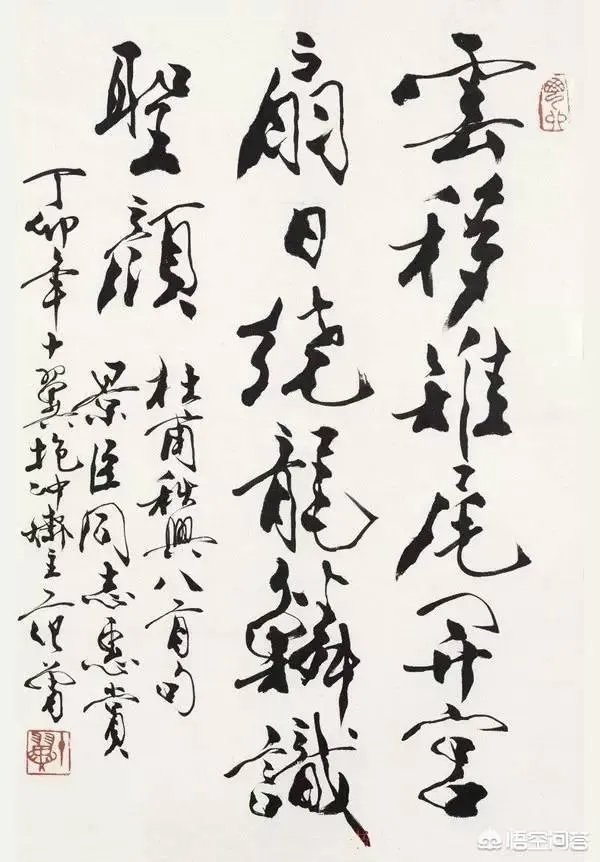 雲移雉尾開宮
扇日繞龍鱗識
聖顏
杜甫秋興八首句
景臣同志惠賞
丁卯年十翼抱冲齋主范曾
悟空问答